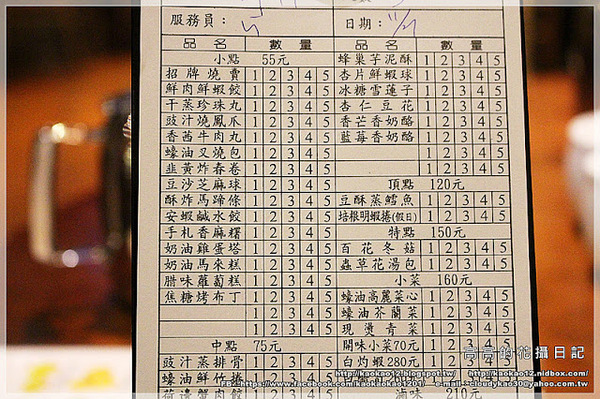 服務員：
日期：
品名 數量 品名 數量
小點 55元
招牌燒賣 1 2 3 4 5
鮮肉鮮蝦餃 1 2 3 4 5
干蒸珍珠丸 1 2 3 4 5
豉汁燒鳳爪 1 2 3 4 5
香茜牛肉丸 1 2 3 4 5
蠔油叉燒包 1 2 3 4 5
韭黃炸春卷 1 2 3 4 5
豆沙芝麻球 1 2 3 4 5
酥炸馬蹄條 1 2 3 4 5
安蝦鹹水餃 1 2 3 4 5
手札香麻糬 1 2 3 4 5
奶油雞蛋塔 1 2 3 4 5
奶油馬來糕 1 2 3 4 5
腊味蘿蔔糕 1 2 3 4 5
焦糖烤布丁 1 2 3 4 5
1 2 3 4 5
中點 75元
豉汁蒸排骨 1 2 3 4 5
蠔油鮮竹捲 1 2 3 4 5
蜂巢芋泥酥 1 2 3 4 5
杏片鮮蝦球 1 2 3 4 5
冰糖雪蓮子 1 2 3 4 5
杏仁豆花 1 2 3 4 5
香芒香奶酪 1 2 3 4 5
藍莓香奶酪 1 2 3 4 5
1 2 3 4 5
1 2 3 4 5
頂點 120元
豆酥蒸鱈魚 1 2 3 4 5
培根明蝦捲(假日) 1 2 3 4 5
特點 150元
百花冬菇 1 2 3 4 5
蟲草花湯包 1 2 3 4 5
小菜 160元
蠔油高麗菜心 1 2 3 4 5
蠔油芥蘭菜 1 2 3 4 5
現燙青菜 1 2 3 4 5
開味小菜70元 1 2 3 4 5
白灼蝦280元 1 2 3 4 5
滷味 210元
的花攝日記
http://kaokao12.blogspot.tw/ http://kaokao12.nidbox.com/
FB：https://www.facebook.com/kaokaokao1201/ e-mail：cloudykao30@yahoo.com.tw